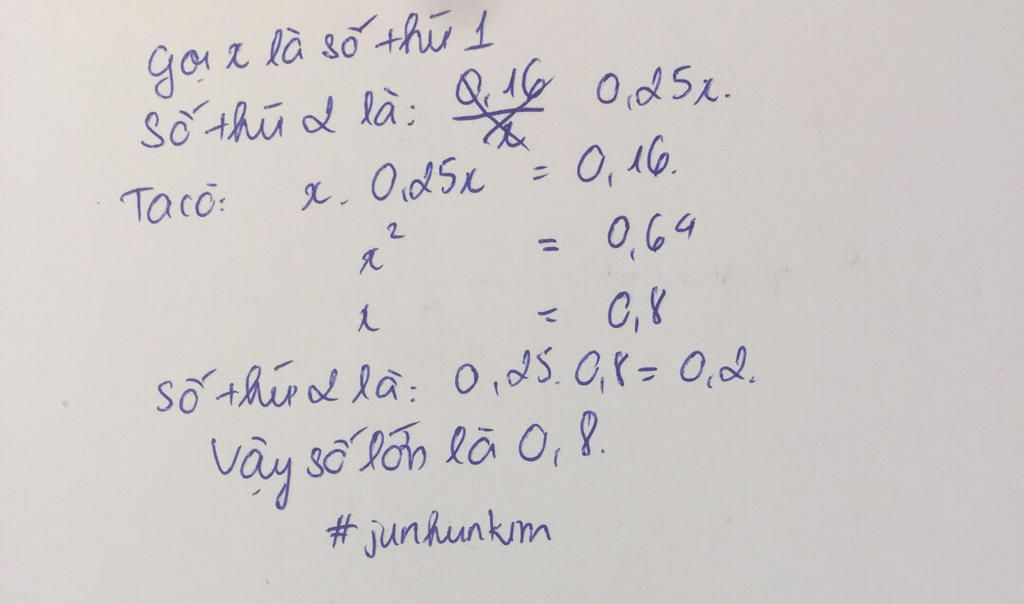 Gọi x là số thứ 1
Số thứ 2 là: 0,16/x 0,25x.
Ta có: x. 0,25x = 0,16.
x² = 0,64
x = 0,8
Số thứ 2 là: 0,25. 0,8 = 0,2.
Vậy số lớn là 0,8.
#junhunkim